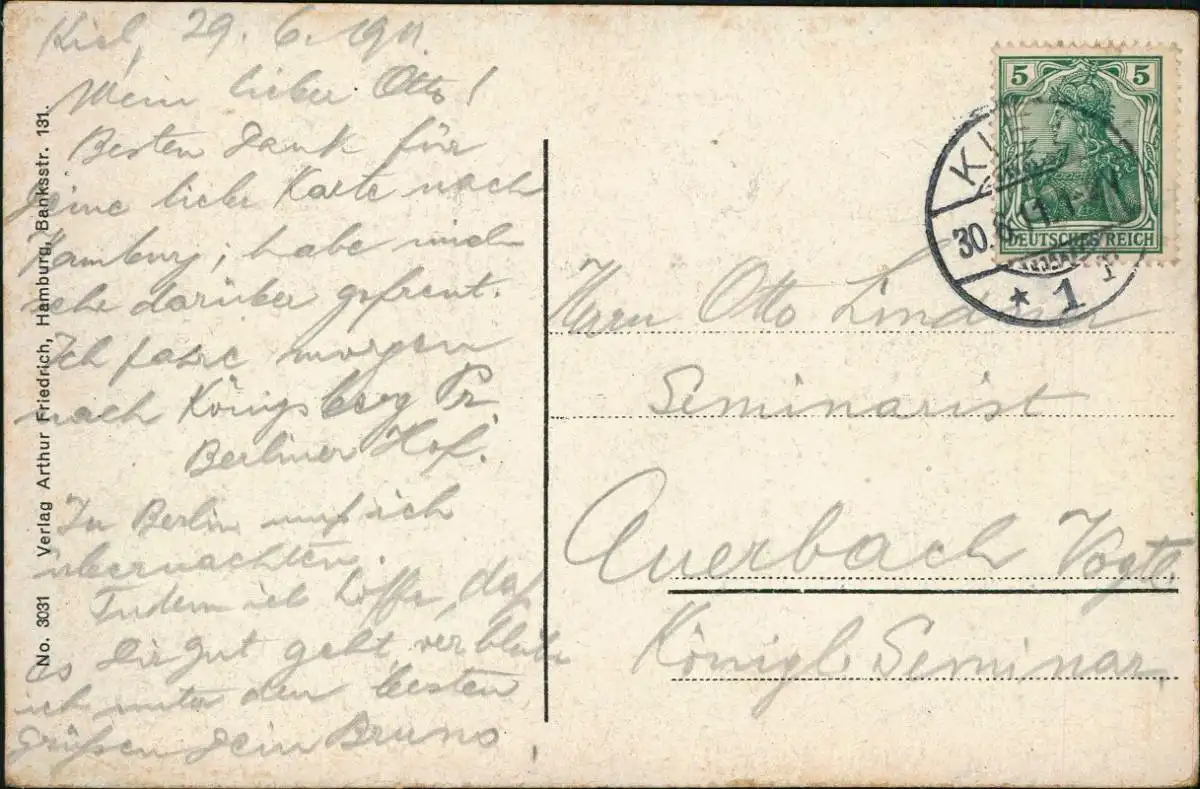 Kiel, 29. 6. 1911.
Mein lieber Otto!
Besten Dank für
Deine liebe Karte nach
Hamburg; habe mich
sehr darüber gefreut.
Ich fahre morgen
nach Königsberg Pr.
Berliner Hof.
In Berlin muß ich
übernachten.
Indem ich hoffe, daß
es Dir gut geht verbleibe
ich unter den besten
Grüßen Dein Bruno
No. 3031 Verlag Arthur Friedrich, Hamburg, Banksstr. 131.
5 5
DEUTSCHES REICH
KIEL
30.6.11.
* 1
Herrn Otto
Seminarist
Auerbach Vogtl.
Königl. Seminar